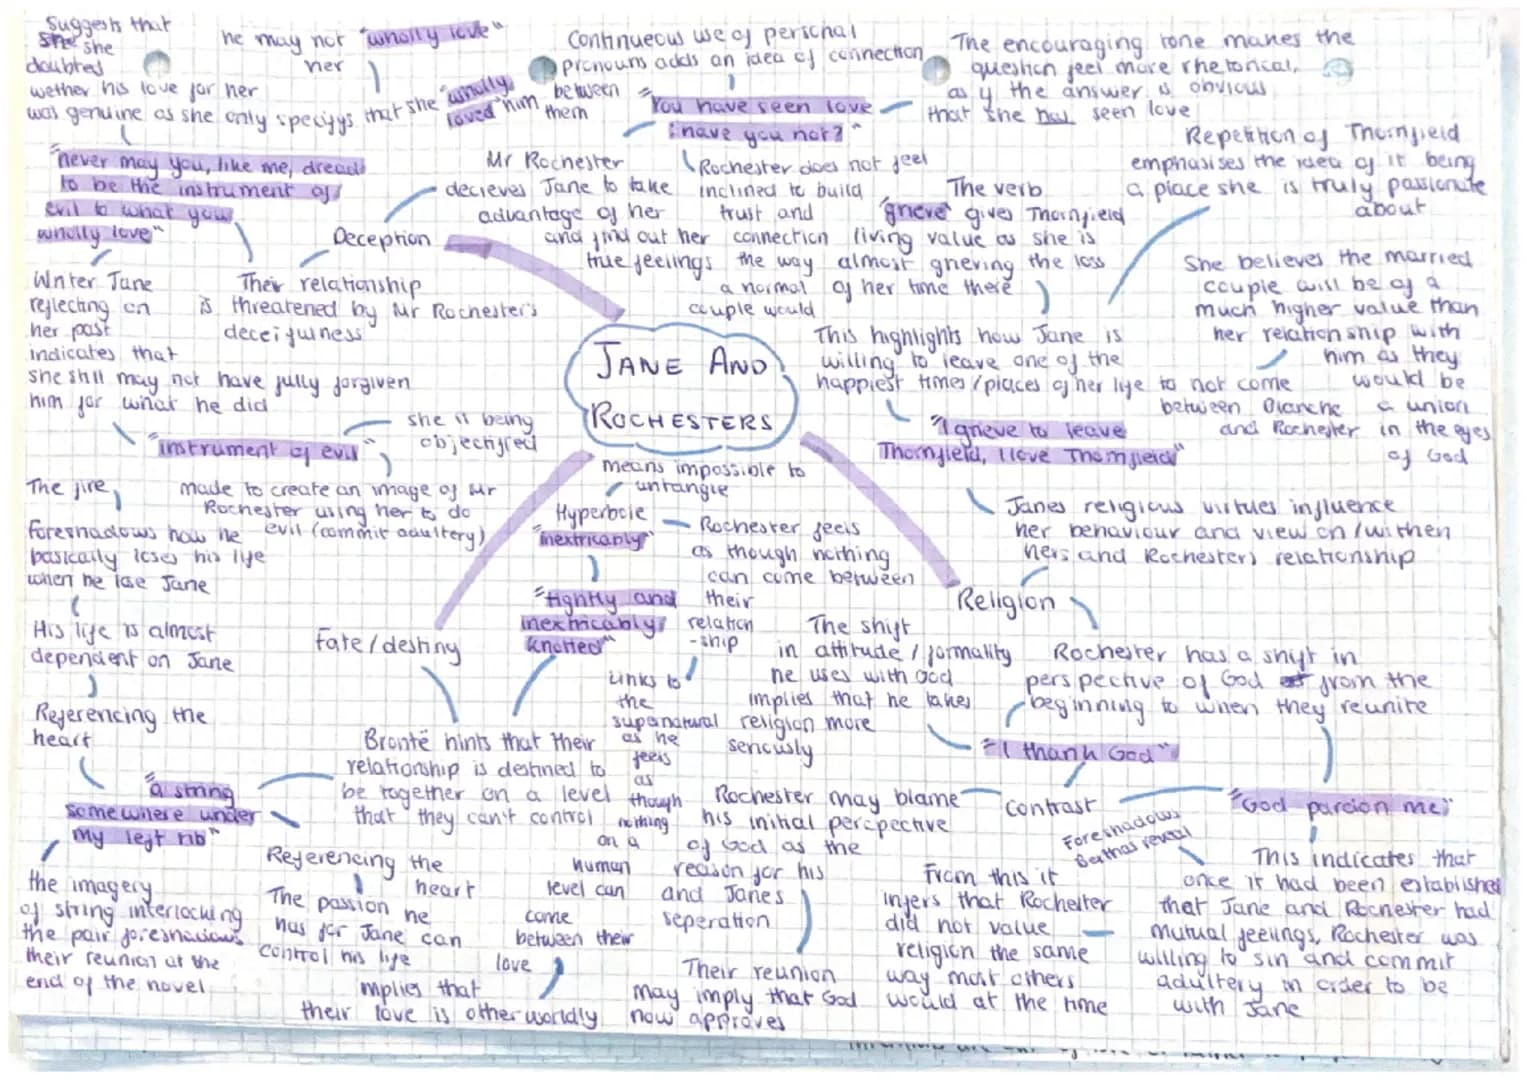 Suggests that
she she
doubtes
wether his love for her
was genuine as she only specifys that she "wholly
loved" him
he may not "wholly love"
her
"never may you, like me, dread
to be the instrument of
evil to what you
wholly love"
Writer Jane
reflecting on
her past
indicates that
she still may not have fully forgiven
him for what he did
Their relationship
is threatened by Mr Rochester's
deceifulness
Deception
Mr Rochester
decieves Jane to take
advantage of her
and find out her
true feelings
Continueous use of personal
pronouns adds an idea of connection
between
them
"You have seen love
have you not?"
Rochester does not feel
inclined to build
trust and
connection
the way
a normal
couple would
The encouraging tone makes the
question feel more rhetorical,
as if the answer is obvious
that she has seen love
The verb
"grieve" gives Thornfield
living value as she is
almost grieving the loss
of her time there
Repetition of Thornfield
emphasises the idea of it being
a place she is truly passionate
about
This highlights how Jane is
willing to leave one of the
happiest times/places of her life to not come
between Blanche
and Rochester
She believes the married
couple will be of a
much higher value than
her relationship with
him as they
would be
a union
in the eyes
of God
"I grieve to leave
Thornfield, I love Thornfield"
JANE AND
ROCHESTERS
"instrument of evil"
she is being
objectifed
made to create an image of Mr
Rochester using her to do
evil (commit adultery)
The fire,
foreshadows how he
basically loses his life
when he lose Jane
His life is almost
dependent on Jane
Referencing the
heart
"a string
somewhere under
my left rib"
the imagery
of string interlocking
the pair foreshadows
their reunion at the
end of the novel
Referencing the
heart
The passion he
has for Jane can
control his life
Fate/destiny
Brontë hints that their
relationship is destined to
be together on a level
that they can't control
means impossible to
untangle
Hyperbole
"inextricably"
Rochester feels
as though nothing
can come between
their
relation
-ship
"tightly and
inextricably
knotted"
Links to
the
supernatural
as he
feels
as
though
nothing
on a
human
level can
come
between their
love
implies that
their love is otherworldly
Janes religious virtues influence
her behaviour and view on/withen
hers and Rochesters relationship
Religion
Rochester has a shift in
perspective of God from the
beginning to when they reunite
The shift
in attitude/formality
he uses with God
implies that he takes
religion more
seriously
"I thank God"
contrast
"God pardon me"
Rochester may blame
his initial percpective
of God as the
reason for his
and Janes
seperation
Their reunion
may imply that God
now approves
Foreshadows
Berthas reveal
From this it
infers that Rochester
did not value
religion the same
way most others
would at the time
This indicates that
once it had been established
that Jane and Rochester had
mutual feelings, Rochester was
willing to sin and commit
adultery in order to be
with Jane